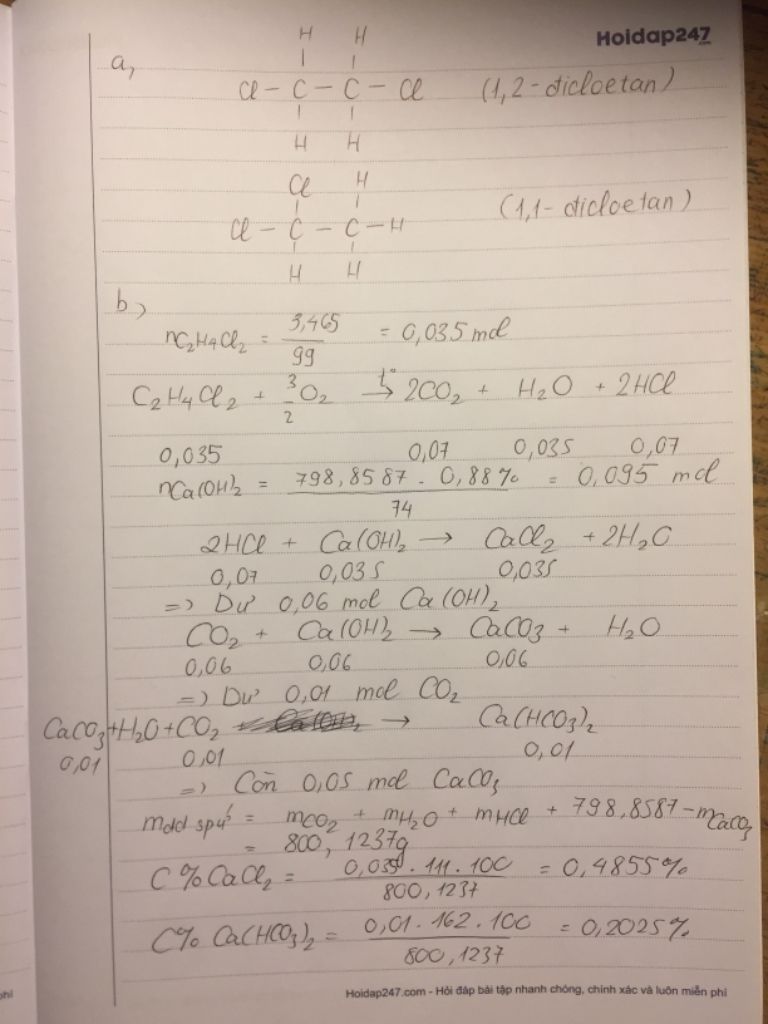 Hoidap247
.com
a,
H H
Cl - C - C - Cl (1,2-đicloetan)
H H
Cl H
Cl - C - C - H (1,1-đicloetan)
H H
b,
nC2H4Cl2 = 3,465 / 99 = 0,035 mol
C2H4Cl2 + 3/2 O2 -t°-> 2CO2 + H2O + 2HCl
0,035 0,07 0,035 0,07
nCa(OH)2 = 798,8587 . 0,88% / 74 = 0,095 mol
2HCl + Ca(OH)2 → CaCl2 + 2H2O
0,07 0,035 0,035
=) Dư 0,06 mol Ca(OH)2
CO2 + Ca(OH)2 → CaCO3 + H2O
0,06 0,06 0,06
=) Dư 0,01 mol CO2
CaCO3+H2O+CO2 → Ca(HCO3)2
0,01 0,01 0,01
=) Còn 0,05 mol CaCO3
mdd spứ = mCO2 + mH2O + mHCl + 798,8587 - mCaCO3
= 800,1237g
C%CaCl2 = 0,035 . 111 . 100 / 800,1237 = 0,4855%
C% Ca(HCO3)2 = 0,01 . 162 . 100 / 800,1237 = 0,2025%
phí
Hoidap247.com - Hỏi đáp bài tập nhanh chóng, chính xác và luôn miễn phí